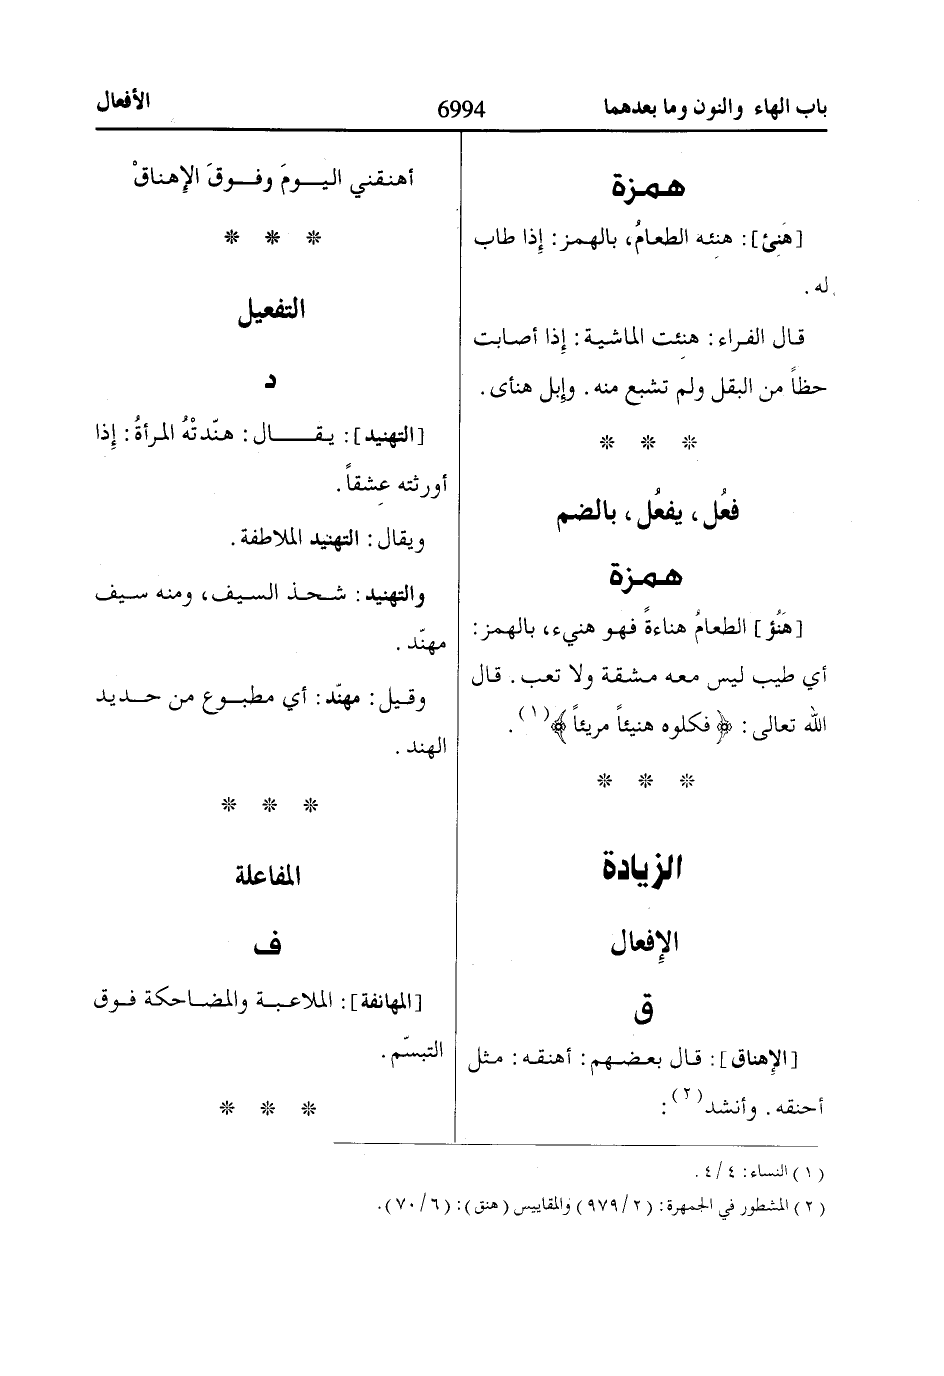 باب الهاء والنون وما بعدهما 6994 الأفعال
همزة
[هَنِئ]: هنئه الطعامُ، بالهمز: إذا طاب
له.
قال الفراء: هنئت الماشية: إذا أصابت
حظاً من البقل ولم تشبع منه. وإبل هنأى.
* * *
فعُل، يفعُل، بالضم
همزة
[هَنُؤ] الطعامُ هناءةً فهو هنيء، بالهمز:
أي طيب ليس معه مشقة ولا تعب. قال
الله تعالى: ﴿فكلوه هنيئاً مريئاً﴾(١).
* * *
الزيادة
الإفعال
ق
[الإهناق]: قال بعضهم: أهنقه: مثل
أحنقه. وأنشد(٢):
أهنقني اليومَ وفوقَ الإهناقْ
* * *
التفعيل
د
[التهنيد]: يقال: هنّدتْهُ المرأةُ: إذا
أورثته عشقاً.
ويقال: التهنيد الملاطفة.
والتهنيد: شحذ السيف، ومنه سيف
مهنّد.
وقيل: مهنّد: أي مطبوع من حديد
الهند.
* * *
المفاعلة
ف
[المهانفة]: الملاعبة والمضاحكة فوق
التبسّم.
* * *
(١) النساء: ٤/٤.
(٢) المشطور في الجمهرة: (٩٧٩/٢) والمقاييس (هنق): (٧٠/٦).